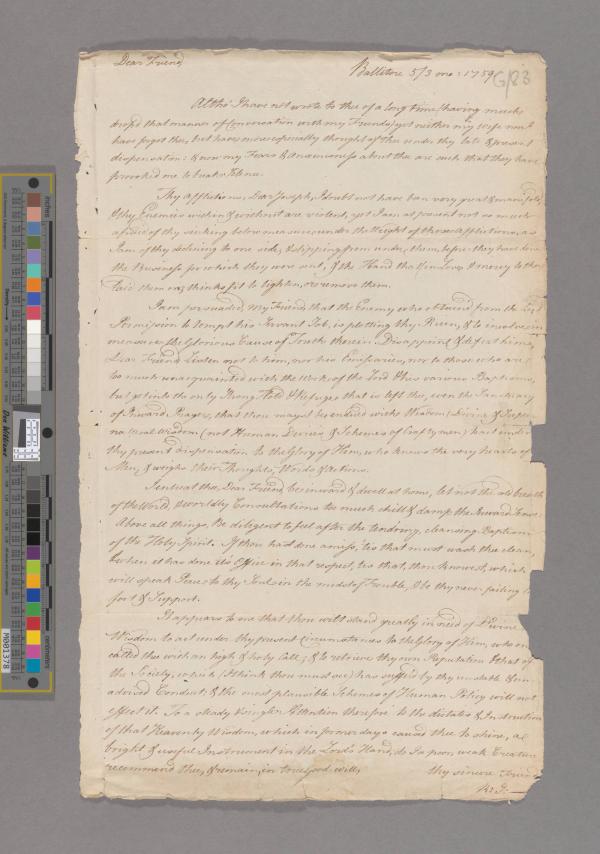 Dear Friend
Ballitore 5/3 mo: 1759
G/83
Altho' I have not wrote to thee of a long time, (having much
drop'd that manner of Conversation with my Friends) yet neither my wife nor I
have forgot thee, but have more especially thought of thee under thy late & present
dispensation: & now my Fears & Anxiousness about thee are such that they have
provoked me to break silence.
Thy afflictions, Dear Joseph, I doubt not have been very great & manifold,
& thy Enemies within & without are violent, yet I am at present not so much
afraid of thy sinking below measure under the Weight of those afflictions, as
I am of thy declining to one side, & slipping from under them, before they have done
the Business for which they were sent, & the Hand that in Love & mercy to thee
laid them on, thinks fit to lighten, or remove them.
I am persuaded my Friend, that the Enemy who obtained from the Lord
Permission to tempt his Servant Job, is plotting thy Ruin, & to involve in
measure the Glorious Cause of Truth therein. Disappoint & defeat him,
Dear Friend, Listen not to him, nor his Emissaries, nor to those who are
too much unacquainted with the Work of the Lord & his various Baptisms,
but get into the only Strong Hold & Refuge that is left thee, even the Sanctuary
of Inward Prayer, that thou mayst be endued with Wisdom (Divine &
Wisdom (not Human Devices & Schemes of Crafty men) to act under
thy present dispensation to the Glory of Him, who knows the very hearts of
Men, & weighs their Thoughts, Words & Actions.
I entreat thee, Dear Friend, be inward & dwell at home, let not the cold breath
of the World, & Worldly Consultations too much chill & damp the Inward
Above all things, Be diligent to feel after the tendering, cleansing Baptism
of the Holy Spirit. If thou hast done amiss, tis that must wash thee clean,
& when it has done its Office in that respect, tis that, thou knowest, which
will speak Peace to thy Soul in the midst of Trouble, & be thy never failing
fort & Support.
It appears to me that thou wilt stand greatly in need of Divine
Wisdom to act under thy present Circumstances to the Glory of Him, who
called thee with an high & holy Call; & to retrieve thy own Reputation & that of
the Society, which (I think thou must see) has suffer'd by thy unstable & un
advised Conduct; & the most plausible Schemes of Human Policy will not
effect it. To a steady & single Attention therefore to the dictates & Instruction
of that Heavenly Wisdom, which in former days caused thee to shine, a
bright & useful Instrument in the Lord's Hand, do I a poor, weak Creature
recommend thee, & remain, in true Good will,
thy sincere Friend